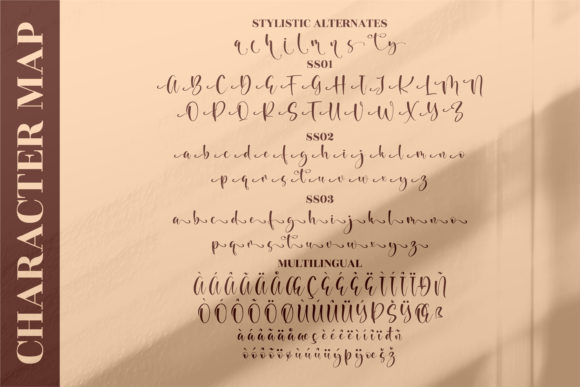 CHARACTER MAP
STYLISTIC ALTERNATES
a e h i l m n s ty
SS01
A B C D E F G H I J K L M N
O P Q R S T U V W X Y Z
SS02
a b c d e f g h i j k l m n o
p q r s t u v w x y z
SS03
a b c d e f g h i j k l m n o
p q r s t u v w x y z
MULTILINGUAL
ÀÁÂÃÄÅÆÇÈÉÊËÌÍÎÏÐÑ
ÒÓÔÕÖØÙÚÛÜÝÞŠŸŒß
àáâãäåæçèéêëìíîïðñ
òóôõöøùúûüýþÿœšž